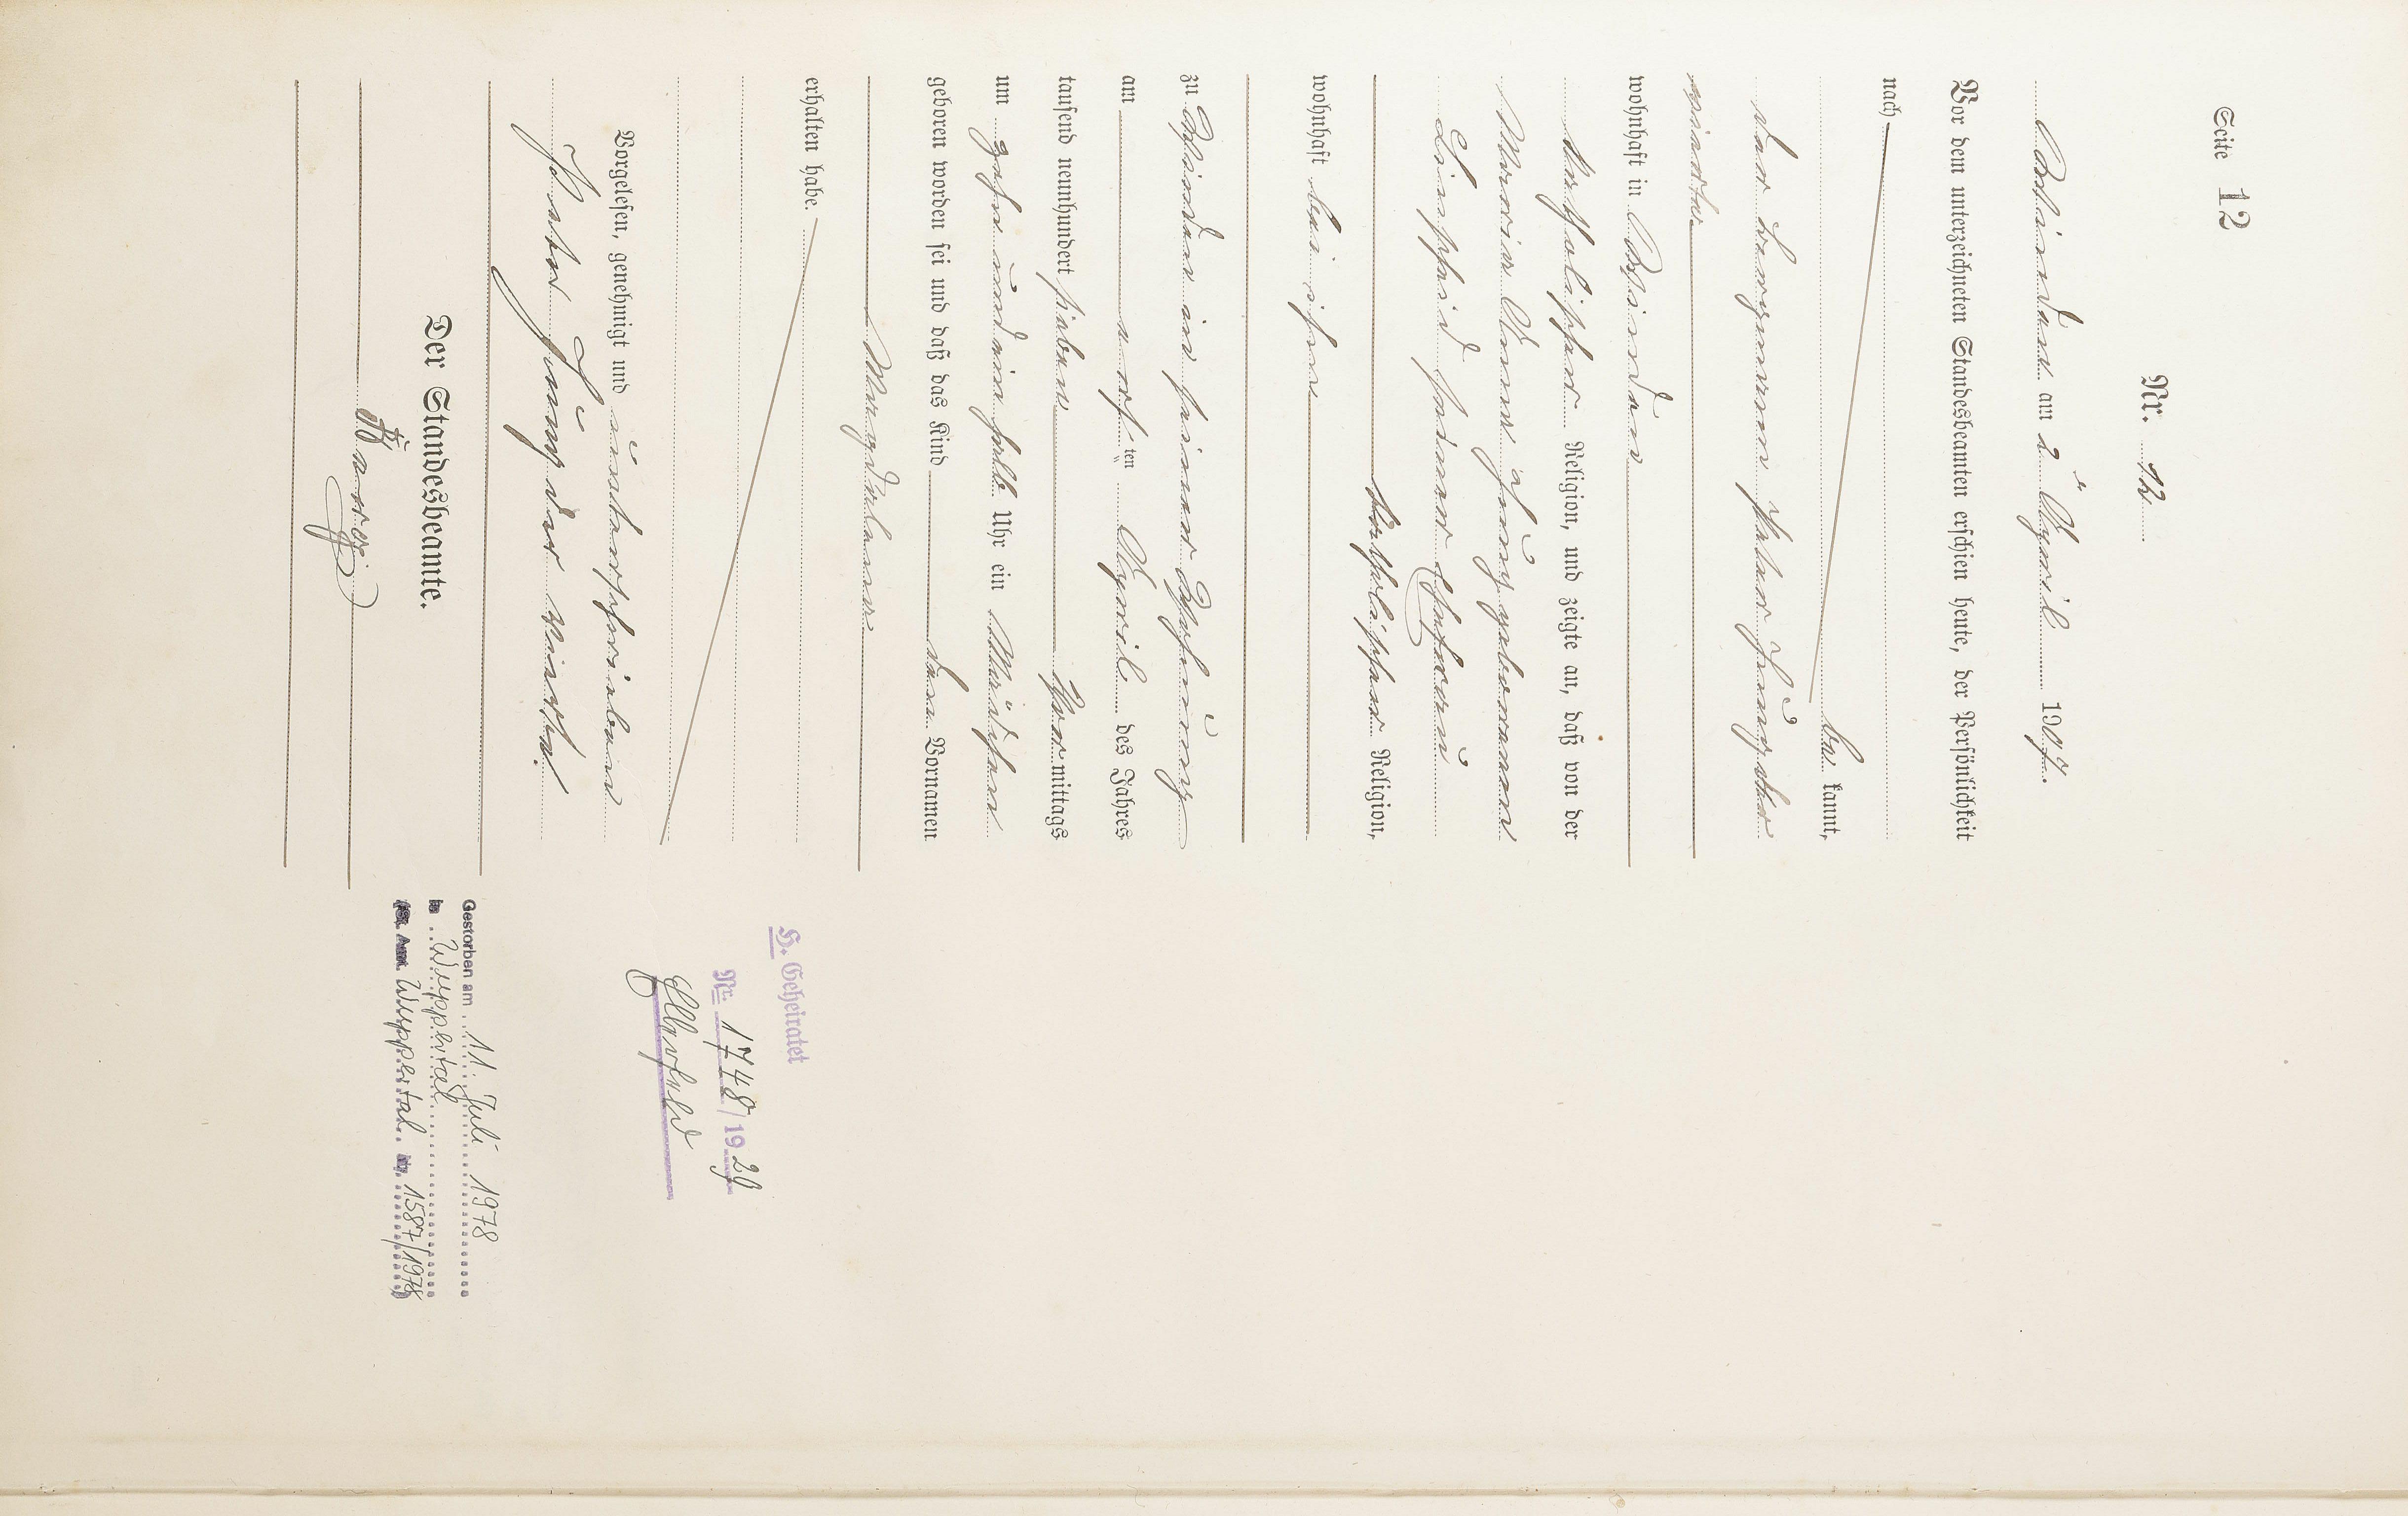 Seite 12
Nr. 12
am 2ten April 1907.
Vor dem unterzeichneten Standesbeamten erschien heute, der Persönlichkeit
nach
be kannt,
der Bergmann Peter Jüng der
vierte
wohnhaft in
katholischer Religion, und zeigte an, daß von der
Maria Anna Jüng geborenen
seiner Ehefrau
katholischer Religion,
wohnhaft bei ihm
zu in seiner Wohnung
am ersten April des Jahres
tausend neunhundert sieben Vor mittags
um zehn und ein halb Uhr ein Mädchen
geboren worden sei und daß das Kind den Vornamen
Magdalena
erhalten habe.
Vorgelesen, genehmigt und unterschrieben
Peter Jüng der vierte.
Der Standesbeamte.
H. Geheiratet
Nr. 1748/1929
Elberfeld
Gestorben am 11. Juli 1978
in Wuppertal
(St. Amt. Wuppertal Nr. 1587/1978)